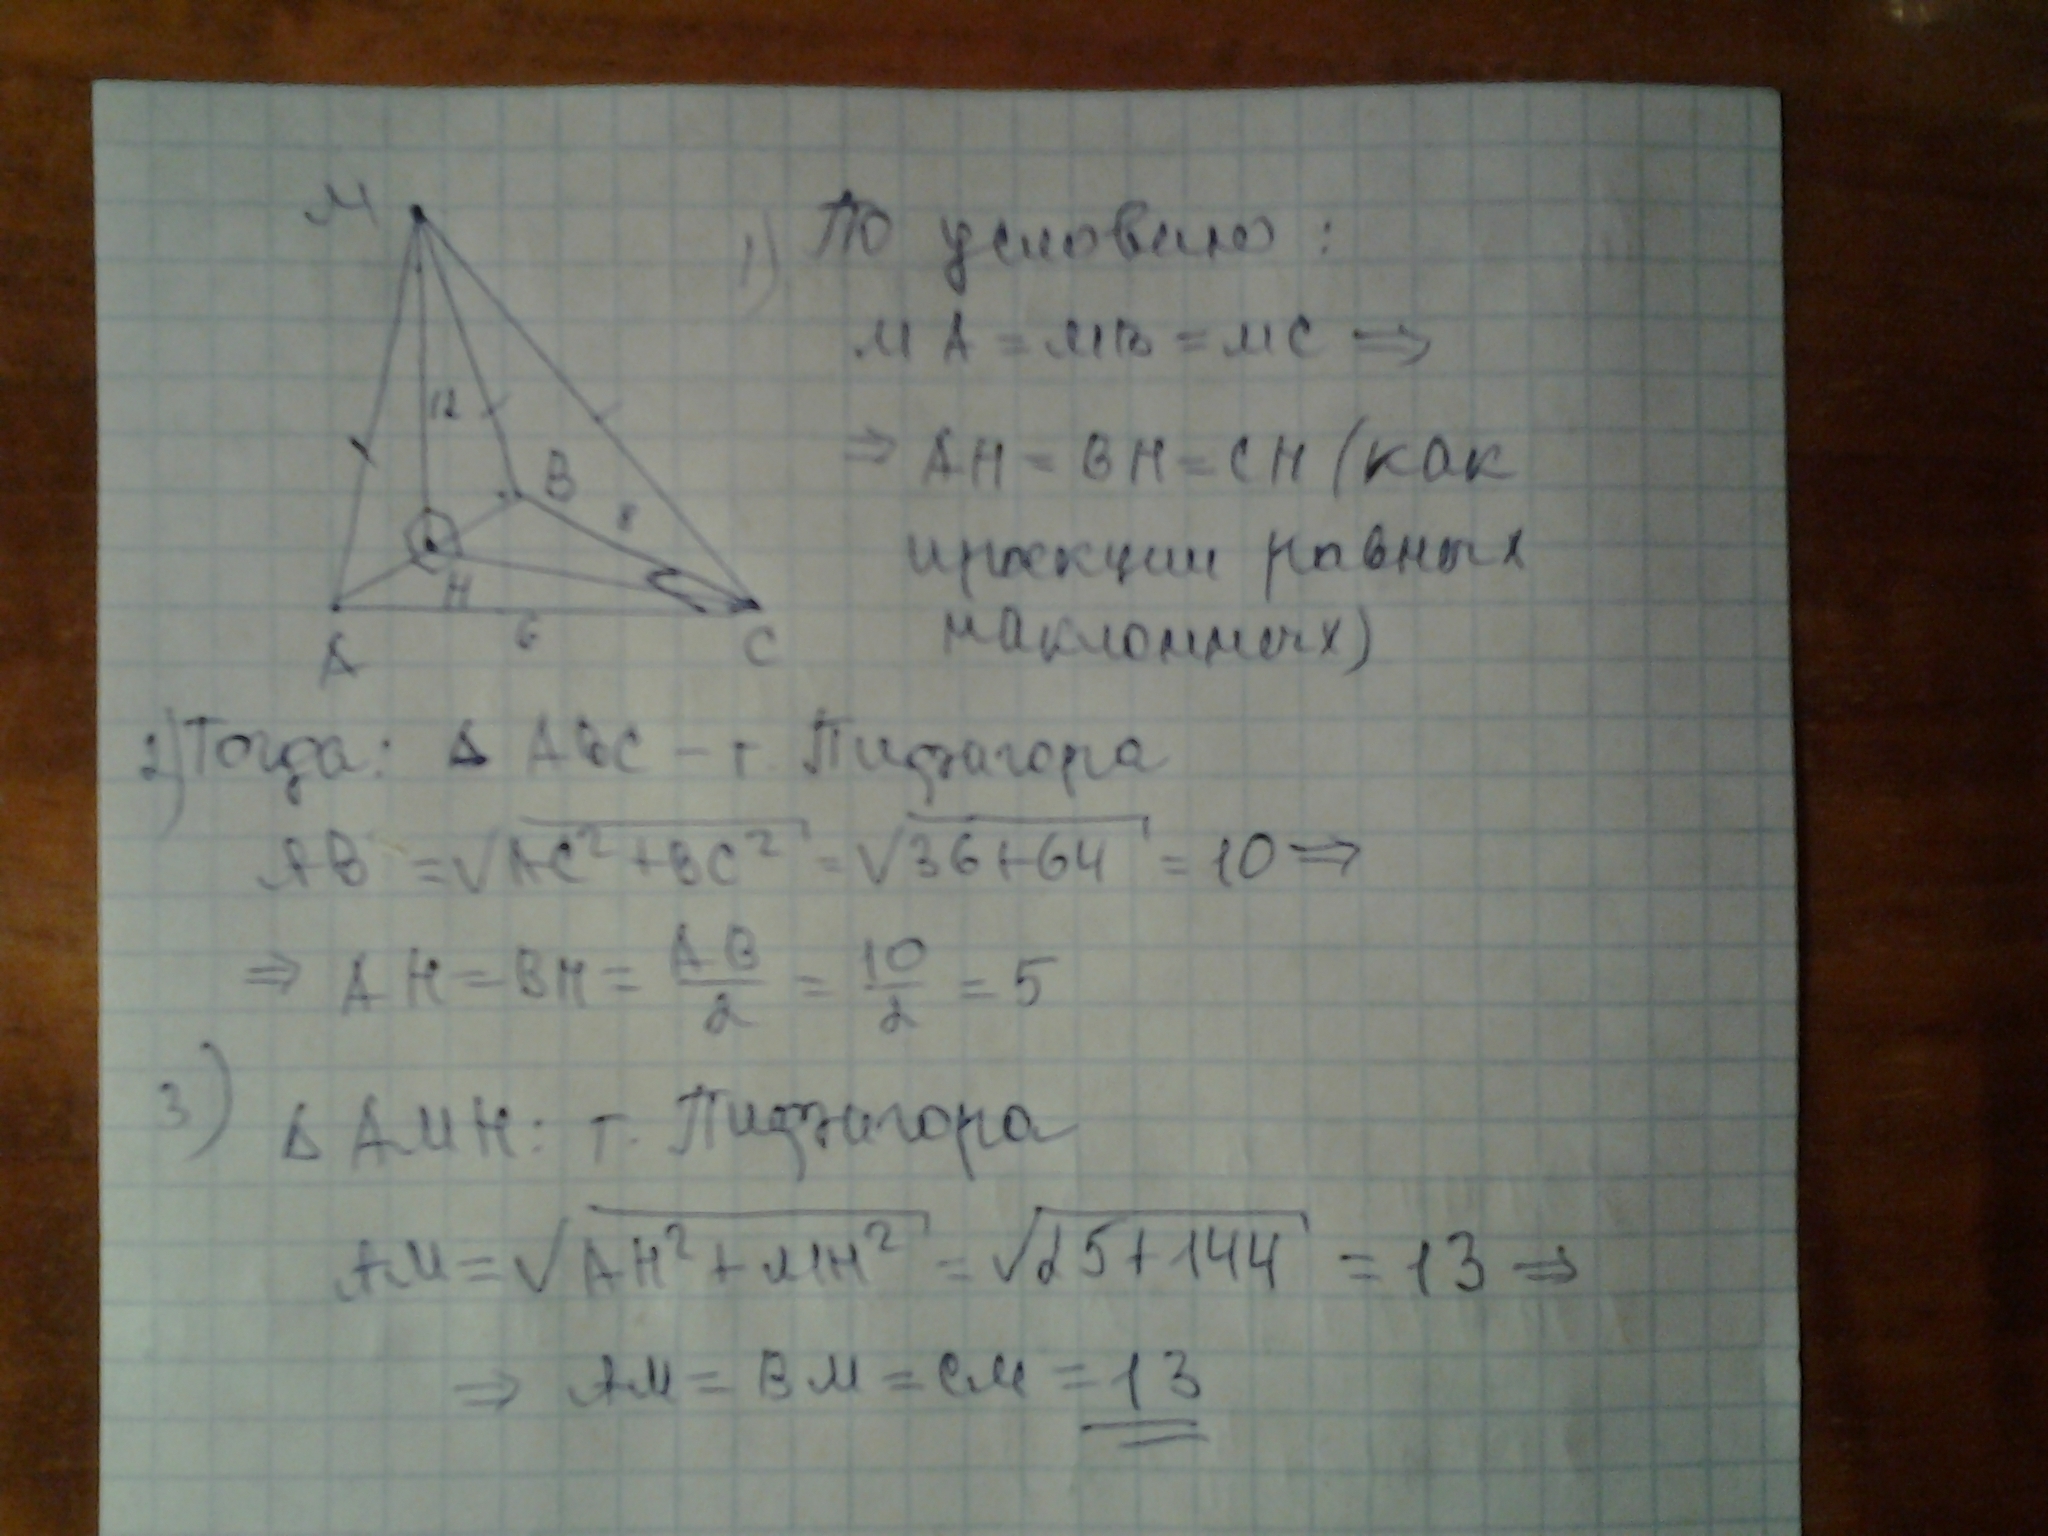 M
12
B
8
H
A
6
C
1) По условию:
MA = MB = MC ⇒
⇒ AH = BH = CH (как
проекции равных
наклонных)
2) Тогда: Δ ABC – т. Пифагора
AB = √AC² + BC² = √36+64 = 10 ⇒
⇒ AH = BH = AB/2 = 10/2 = 5
3) Δ AMH: т. Пифагора
AM = √AH² + MH² = √25+144 = 13 ⇒
⇒ AM = BM = CM = 13